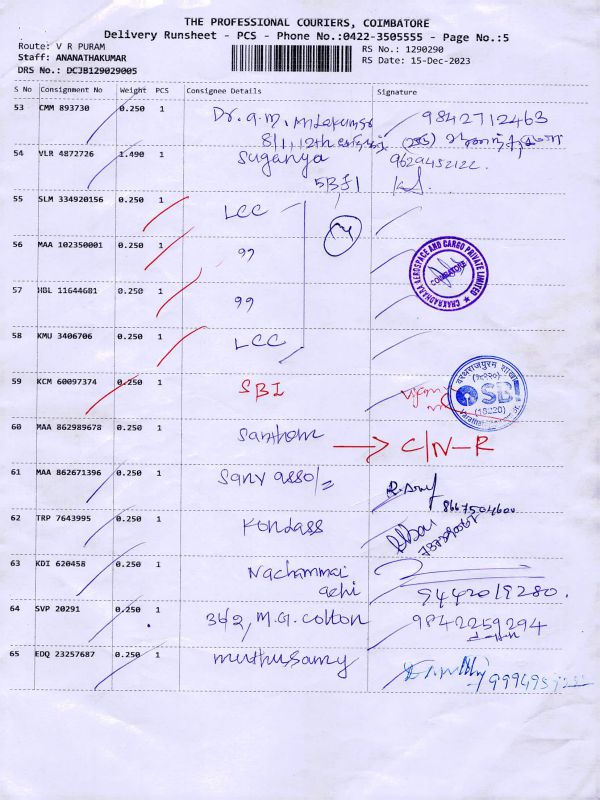 THE PROFESSIONAL COURIERS, COIMBATORE
Delivery Runsheet - PCS - Phone No.:0422-3505555 - Page No.:5
Route: V R PURAM
Staff: ANANATHAKUMAR
DRS No.: DCJB129029005
RS No.: 1290290
RS Date: 15-Dec-2023
S No Consignment No Weight PCS Consignee Details Signature
53 CMM 893730 0.250 1 Dr. 9842712463
8/1, 12th
54 VLR 4872726 1.490 1 Suganya
55 SLM 334920156 0.250 1 LCC
56 MAA 102350001 0.250 1 99
CHAKRADHARA AEROSPACE AND CARGO PRIVATE LIMITED
COIMBATORE
57 HBL 11644681 0.250 1 99
58 KMU 3406706 0.250 1 LCC
59 KCM 60097374 0.250 1 SBI
SBI
(18220)
60 MAA 862989678 0.250 1 Santhom → C/N-R
61 MAA 862671396 0.250 1 8667504600
62 TRP 7643995 0.250 1 Kondass
63 KDI 620458 0.250 1 Nachammai
9442019280.
64 SVP 20291 0.250 1 362, M.G. Cotton 9842259294
65 EDQ 23257687 0.250 1 muthusamy